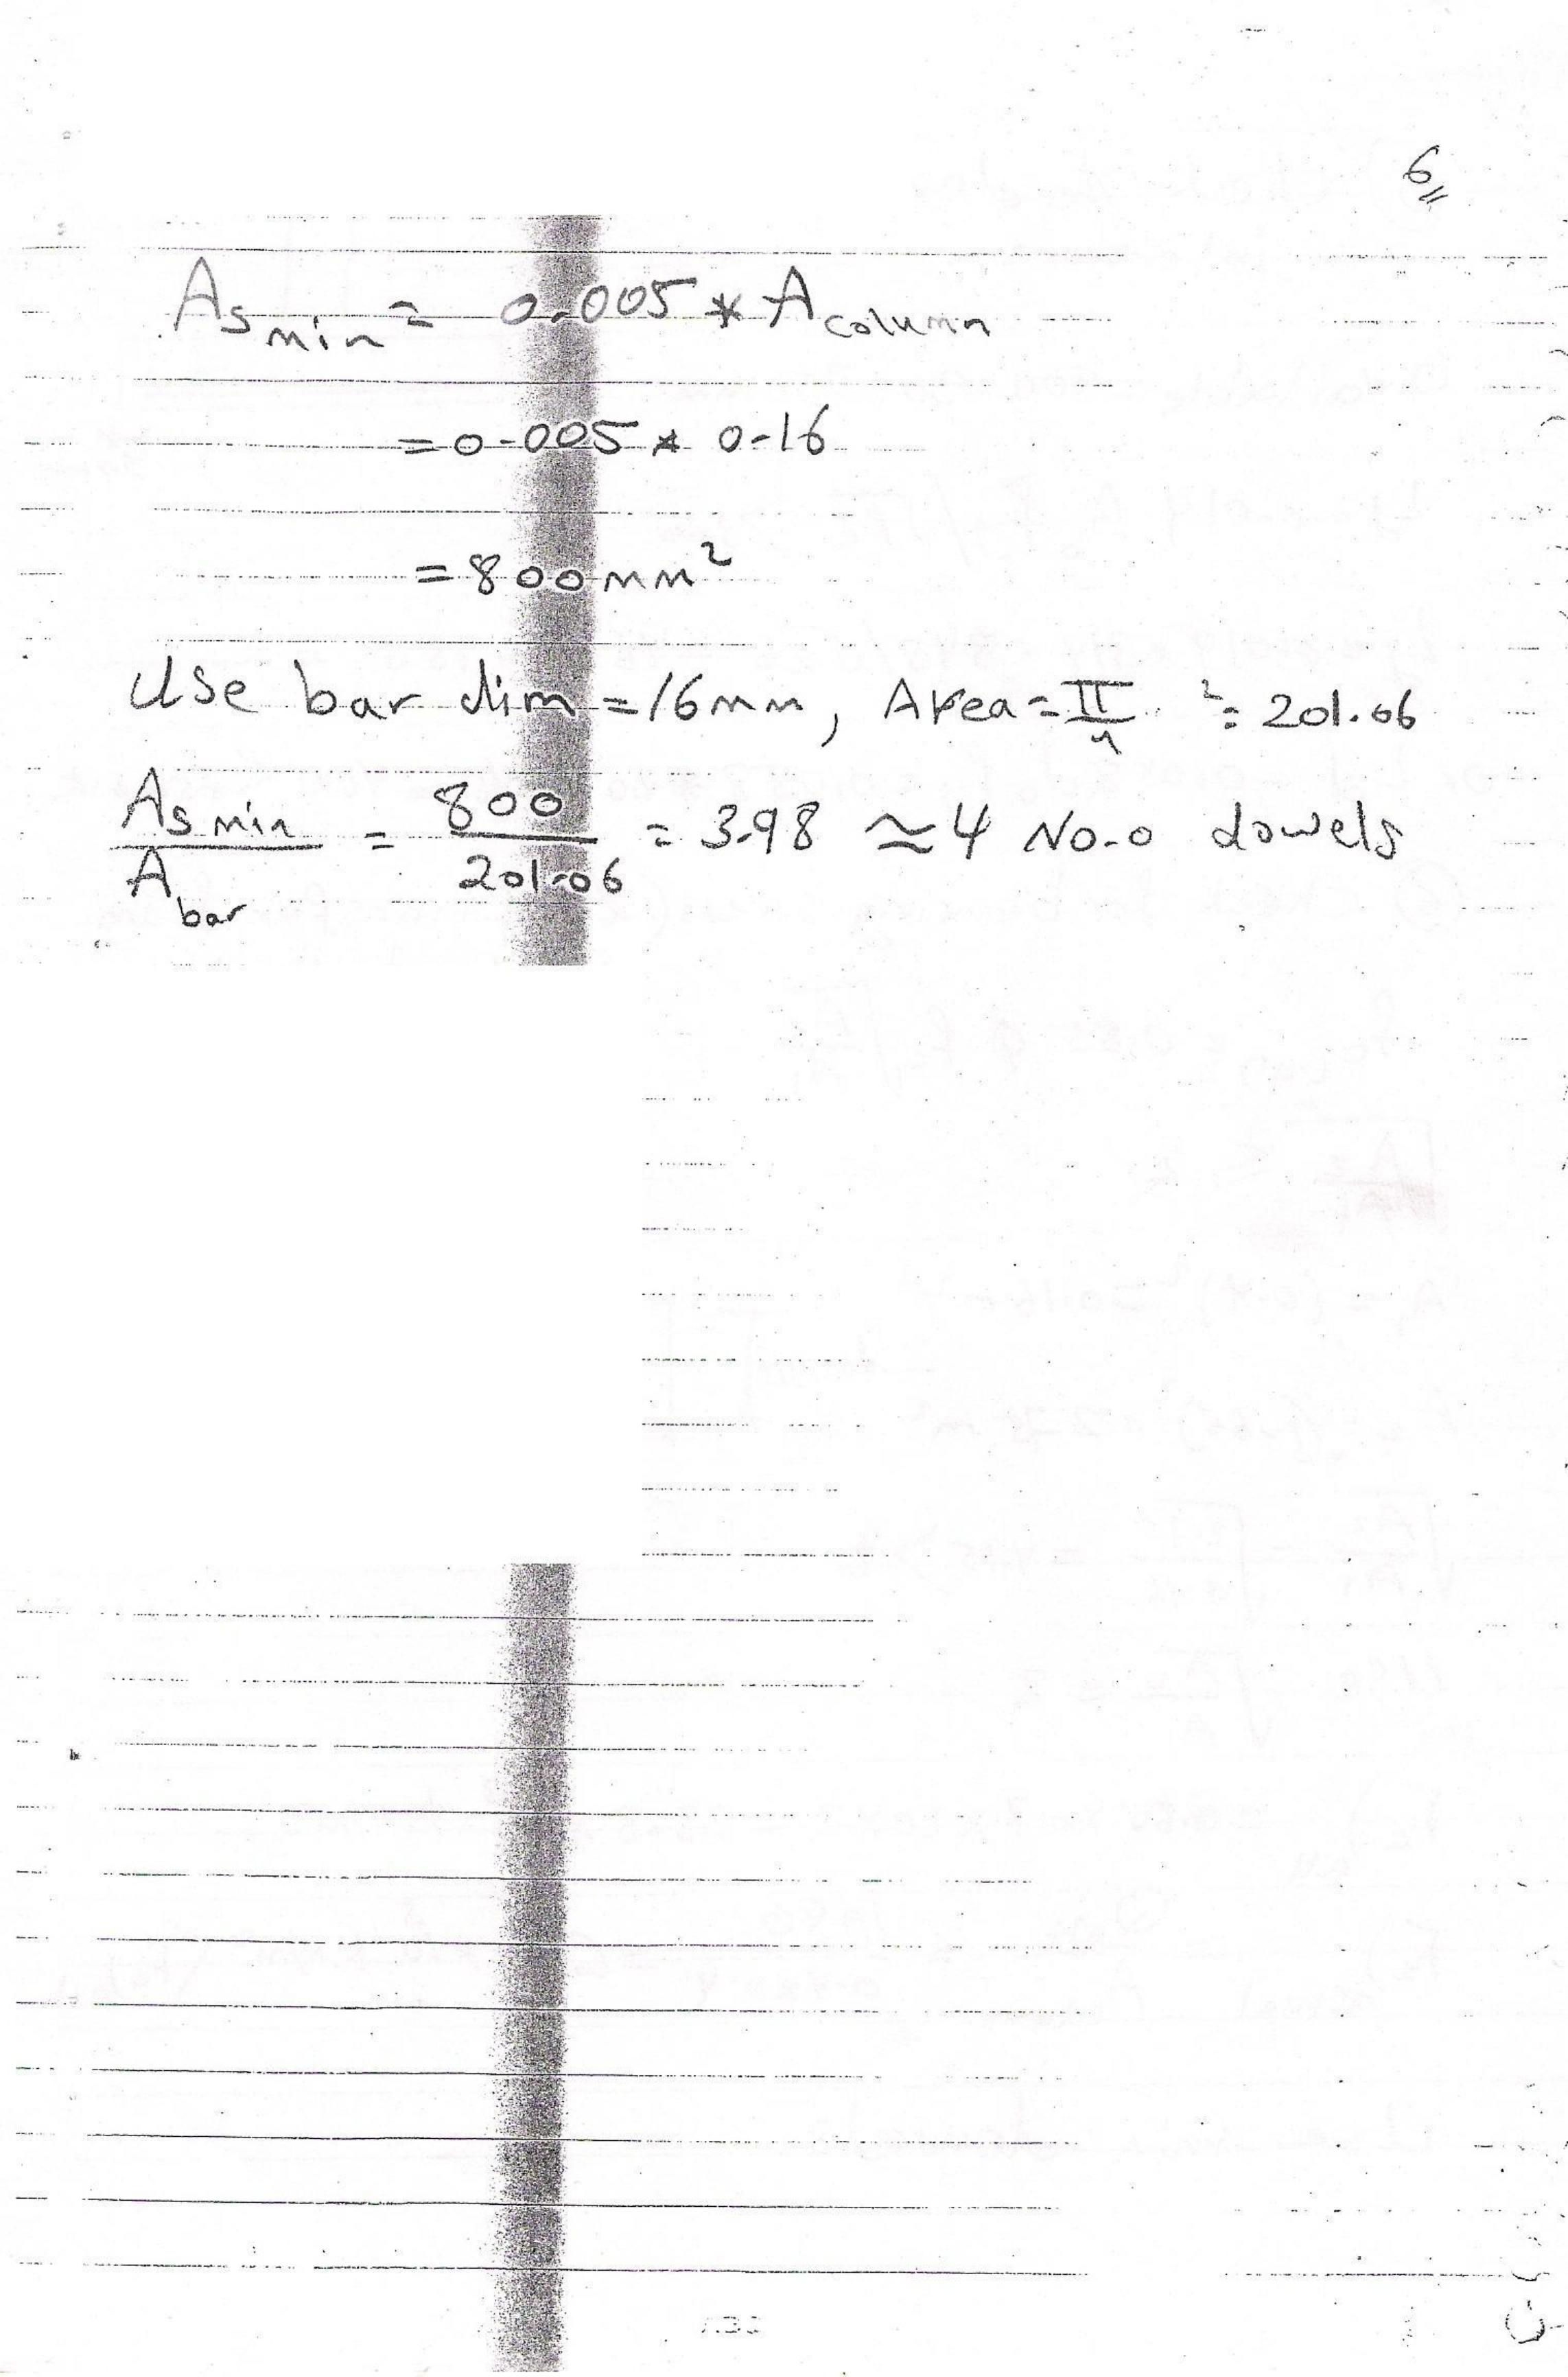 6
As min = 0.005 * A column
= 0.005 * 0.16
= 800 mm²
Use bar dim = 16mm, Area = π/4 ² = 201.06
As min / A bar = 800 / 201.06 = 3.98 ≃ 4 No.o dowels